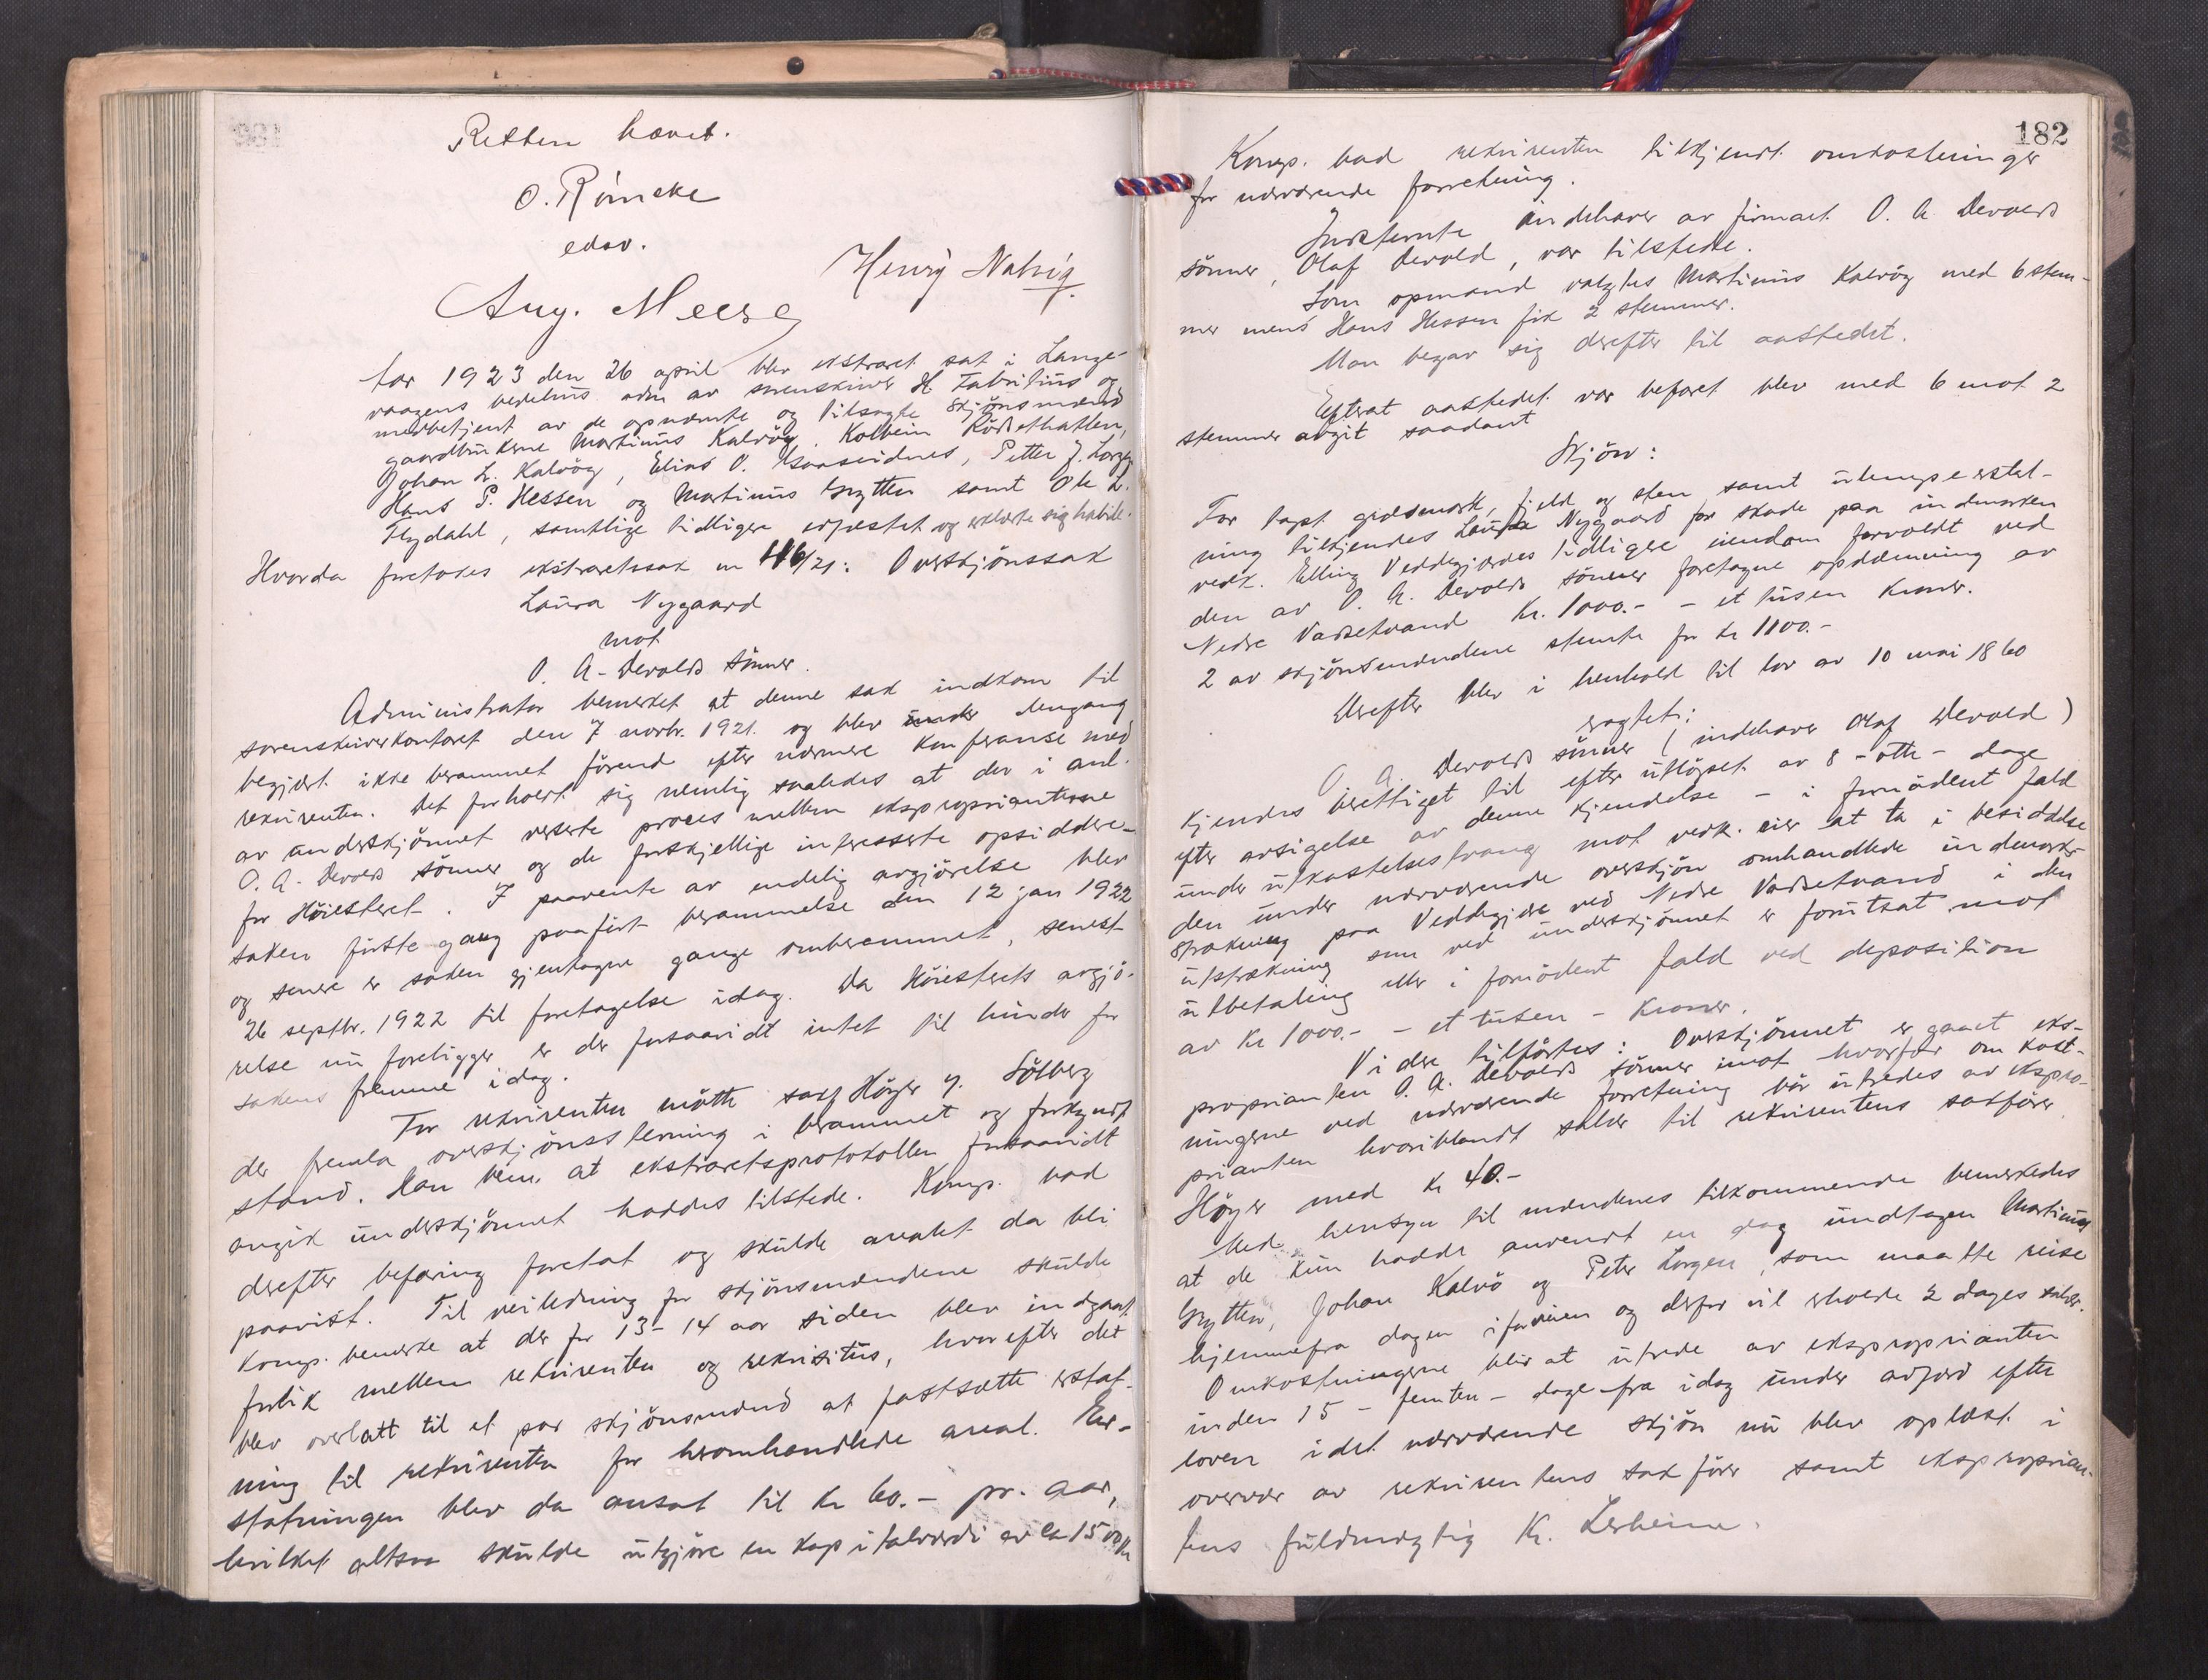 Retten hævet.
O. Röineke
edsv.
Henrij Natvig.
Aug. Meese
Aar 1923 den 26 april blev ekstraret sat i Lange-
vaagens bedehus adm av sorenskriver H Fabritius og
medbetjent av de opnævnte og tilsagte skjönsmænd
gaardbrukerne Martinus Kalvög, Kolbein Rödsethatlen,
Johan L. Kalvög, Elias O. Kaarseidnes, Petter J. Lorgen
Hans P. Hessen og Martinus Grytten samt Ole L.
Flydahl, samtlige tidligere edfæstet og erklærte sig habile.
Hvorda foretokes ekstraretssak nr 116/21: Overskjönssak
Laura Nygaard
mot
O. A. Devolds sönner.
Administrator bemerket at denne sak indkom til
sorenskriverkontoret den 7 novbr. 1921. og blev under dengang
begjært ikke berammet förend efter nærmere konferanse med
rekvirenten. Det forholdt sig nemlig saaledes at der i anl.
av underskjönnet verserte proces mellem ekspropriantene
O. A. Devolds sönner og de forskjellige interesserte opsiddere
for Höiesteret. I paavente av endelig avgjörelse blev
saken förste gang paaført berammelse den 12 jan 1922
og senere er saken gjentagne gange omberammet, senest
26 septbr. 1922 til foretagelse idag. Da Höiesterets avgjö-
relse nu foreligger er der forsaavidt intet til hinder for
sakens fremme idag.
For rekvirenten mötte sakf Höyer y. Sölberg
der fremla overskjönsstevning i berammet og forkyndt
stand. Han bem. at ekstraretsprotokollen forsaavidt
angik underskjönnet haddes tilstede. Komp. bad
derefter befaring foretat og skulde arealet da bli
paavist. Til veiledning for skjönsmændene skulde
komp. bemerke at der for 13-14 aar siden blev indgaat
forlik mellem rekvirenten og rekvisitus, hvorefter det
blev overlatt til et par skjönsmænd at fastsætte erstat-
ning til rekvirenten for heromhandlede areal. Er-
statningen blev da ansat til kr 60.- pr. aar,
hvilket altsaa skulde utgjöre en kapitalværdi av ca 1500 kr
182
Komp. bad rekvirenten tilkjendt omkostninger
for nærværende forretning.
Indstevnte indehaver av firmaet O. A. Devolds
sönner, Olaf Devold, var tilstede.
Som opmand valgtes Martinus Kalvög med 6 stem-
mer mens Hans Hessen fik 2 stemmer.
Man begav sig derefter til aastedet.
Efterat aastedet var befaret blev med 6 mot 2
stemmer avgit saadant
Skjön:
For tapt græsmark, fjeld og sten samt ulempeerstat-
ning tilkjendes Laura Nygaard for skade paa indmarken
vedk. Elling Veddegjærdes tidligere eiendom forvoldt ved
den av O. A. Devolds sönner foretagne opdæmning av
Nedre Vadsetvand Kr. 1000.- - et tusen kroner.
2 av skjönsmændene stemte for kr 1100.-
Derefter blev i henhold til lov av 10 mai 1860
eragtet:
O. A. Devolds sönner (indehaver Olaf Devold)
kjendes berettiget til efter utlöpet av 8 - otte - dage
efter avsigelse av denne kjendelse - i fornödent fald
under utkastelsestvang mot vedk. eier at ta i besiddelse
den under nærværende overskjön omhandlede indmarks-
strækning paa Veddegjerde ved Nedre Vadsetvand i den
utstrækning som ved underskjönnet er forutsat mot
utbetaling eller i fornödent fald ved deposition
av kr 1000.- - et tusen - kroner.
Videre tilförtes: Overskjönnet er gaaet eks-
proprianten O. A. Devolds sönner imot hvorfor om kost-
ningerne ved nærværende forretning bör utredes av ekspro-
prianten hvoriblandt salær til rekvirentens sakförer
Höyer med kr 40.-
Med hensyn til mændenes tilkommende bemerkedes
at de kun hadde anvendt en dag undtagen Martinus
Grytten, Johan Kalvö og Peter Lorgen, som maatte reise
hjemmefra dagen iforveien og derfor vil erholde 2 dages salær.
Omkostningerne blir at utrede av eksproprianten
inden 15 - femten - dage fra idag under adfærd efter
loven idet nærværende skjön nu blev oplæst i
overvær av rekvirentens sakförer samt eksproprian-
tens fuldmægtig K. Lerheim.